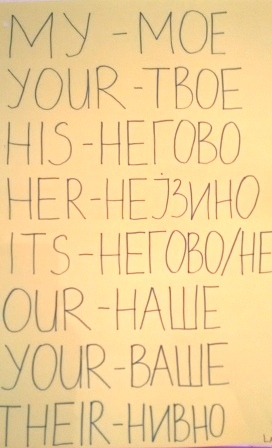 MY - МОЕ
YOUR - ТВОЕ
HIS - НЕГОВО
HER - НЕЈЗИНО
ITS - НЕГОВО/НЕ
OUR - НАШЕ
YOUR - ВАШЕ
THEIR - НИВНО